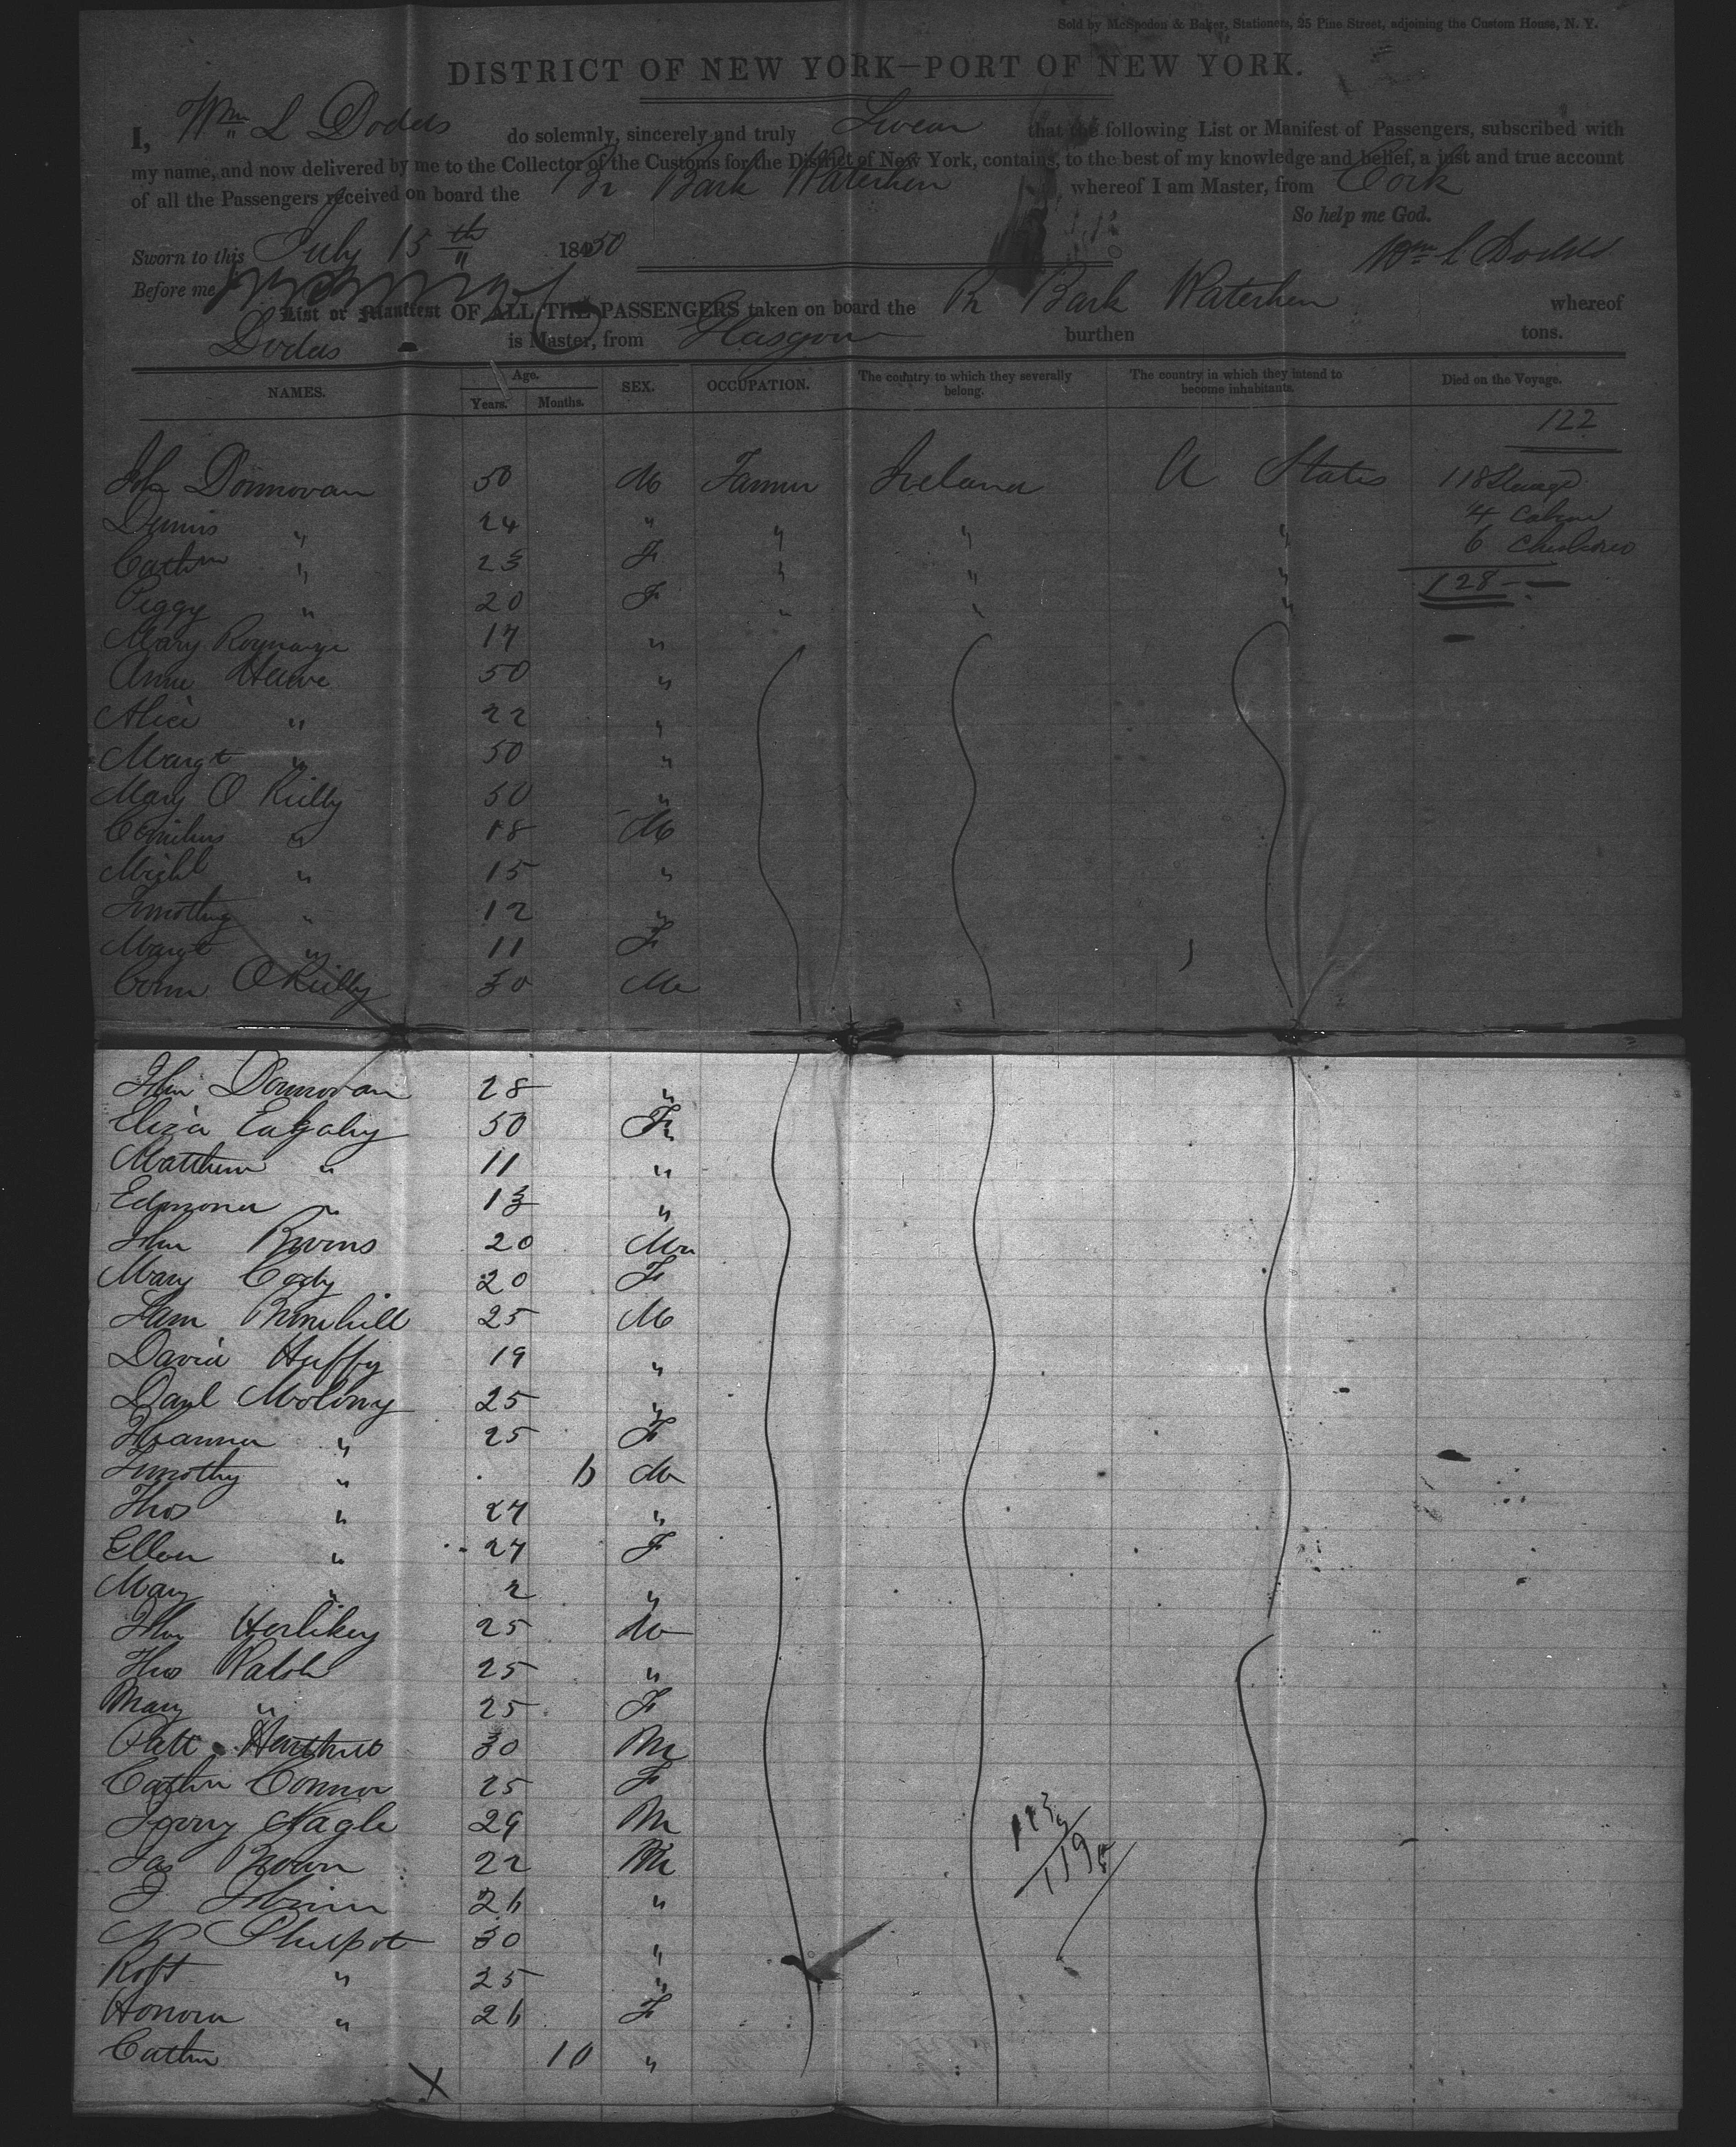 Sold by McSpedon & Baker, Stationers, 25 Pine Street, adjoining the Custom House, N. Y.
DISTRICT OF NEW YORK—PORT OF NEW YORK.
I, Wm L Dodds do solemnly, sincerely and truly Swear that the following List or Manifest of Passengers, subscribed with
my name, and now delivered by me to the Collector of the Customs for the District of New York, contains, to the best of my knowledge and belief, a just and true account
of all the Passengers received on board the Br Bark Waterhen whereof I am Master, from Cork
So help me God.
Sworn to this July 15th 1850 Wm L Dodds
Before me
List or Manifest OF ALL THE PASSENGERS taken on board the Br Bark Waterhen whereof
Dodds is Master, from Glasgow burthen tons.
NAMES. Age. Years. Months. SEX. OCCUPATION. The country to which they severally belong. The country in which they intend to become inhabitants. Died on the Voyage.
122
John Donnovan 50 M Farmer Ireland U States 118 Steerage
Dennis " 24 " " " " 4 Cabin
Cathne " 23 F " " " 6
Peggy " 20 F " " " 128
Mary 17 "
Anne 50 "
Alice " 22 "
Margt " 50 "
Mary O Rielly 50 "
Cornilius " 18 M
Michl " 15 "
Timothy " 12 "
Margt " 11 F
Conn O Rielly 30 M
John Donnovan 28 "
Eliza 50 F
Matthew " 11 "
Edmond " 13 "
John 20 M
Mary Cody 20 F
25 M
David Huffy 19 "
Danl Molony 25 "
Johanna " 25 F
Timothy " M
Thos " 27 "
Ellen " 27 F
Mary " 2 "
John Herlihey 25 M
Thos Walsh 25 "
Mary " 25 F
Patt 30 M
Cathn Connor 25 F
Jerry Nagle 29 M
Jas Brown 22 M
26 "
Philpot 30 "
Robt " 25 "
Honora " 26 F
Cathn 10 "
X